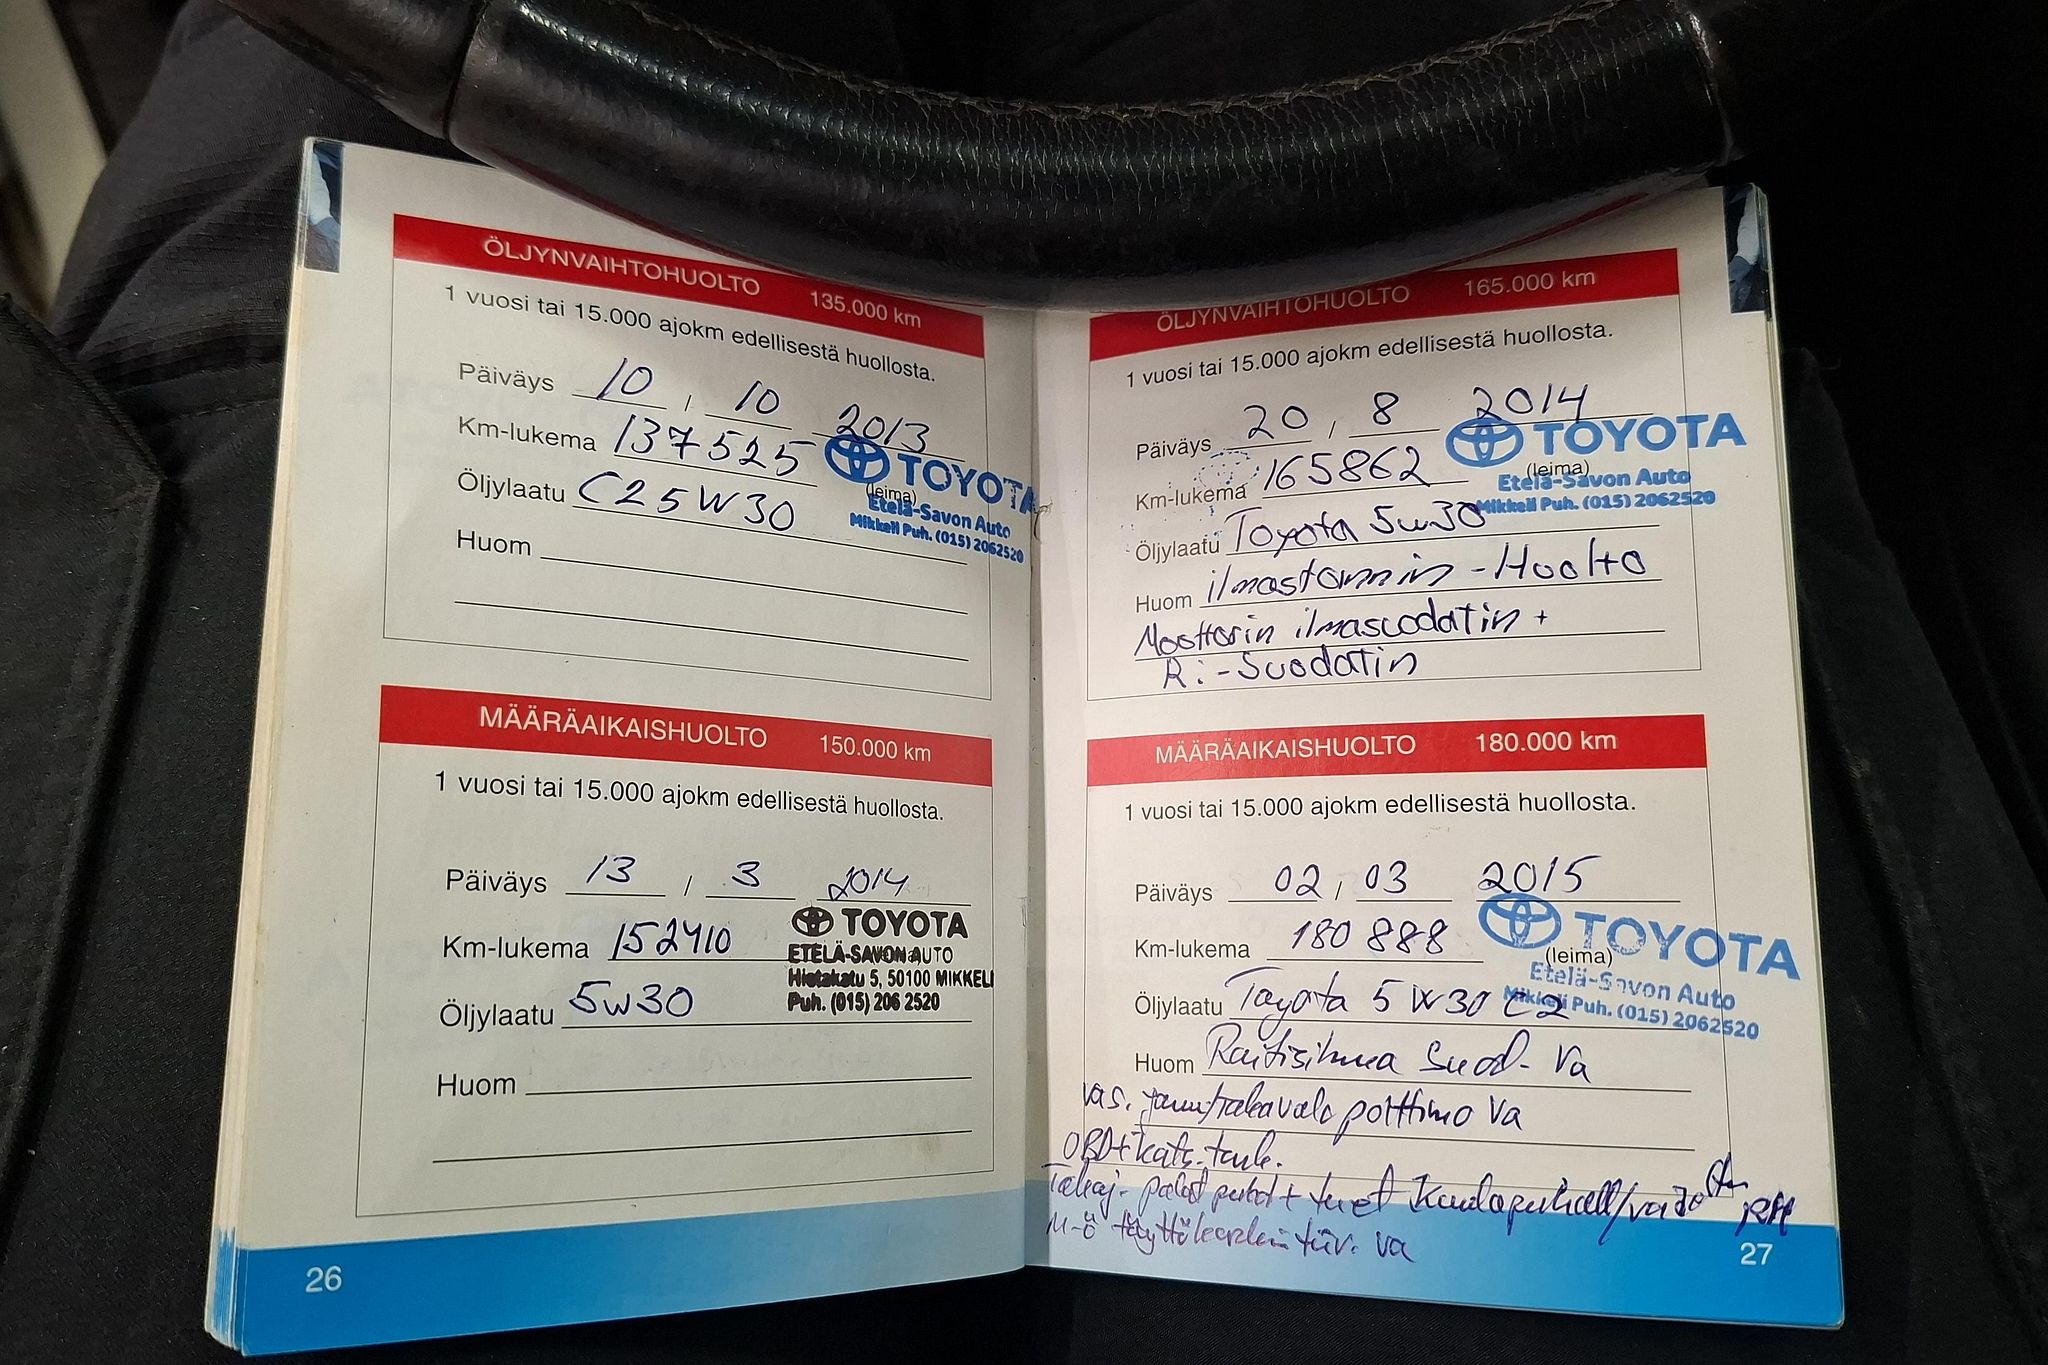 ÖLJYNVAIHTOHUOLTO 135.000 km
1 vuosi tai 15.000 ajokm edellisestä huollosta.
Päiväys 10 , 10 2013
Km-lukema 137525
Öljylaatu C25W30
(leima)
TOYOTA
Etelä-Savon Auto
Mikkeli Puh. (015) 2062520
Huom
MÄÄRÄAIKAISHUOLTO 150.000 km
1 vuosi tai 15.000 ajokm edellisestä huollosta.
Päiväys 13 / 3 2014
Km-lukema 152410
Öljylaatu 5W30
TOYOTA
ETELÄ-SAVON AUTO
Hietakatu 5, 50100 MIKKELI
Puh. (015) 206 2520
Huom
26
ÖLJYNVAIHTOHUOLTO 165.000 km
1 vuosi tai 15.000 ajokm edellisestä huollosta.
Päiväys 20 , 8 2014
Km-lukema 165862
TOYOTA
(leima)
Etelä-Savon Auto
Mikkeli Puh. (015) 2062520
Öljylaatu Toyota 5w30
Huom ilmastonnin - Huolto
Moottorin ilmascodatin +
R:-Suodatin
MÄÄRÄAIKAISHUOLTO 180.000 km
1 vuosi tai 15.000 ajokm edellisestä huollosta.
Päiväys 02 , 03 2015
Km-lukema 180 888
TOYOTA
(leima)
Etelä-Savon Auto
Mikkeli Puh. (015) 2062520
Öljylaatu Toyota 5W30 C2
Huom Raitisilma Suod- va
vas. polttimo va
OBD+kats. tark.
Takaj.
M-ö tiiv. va
27